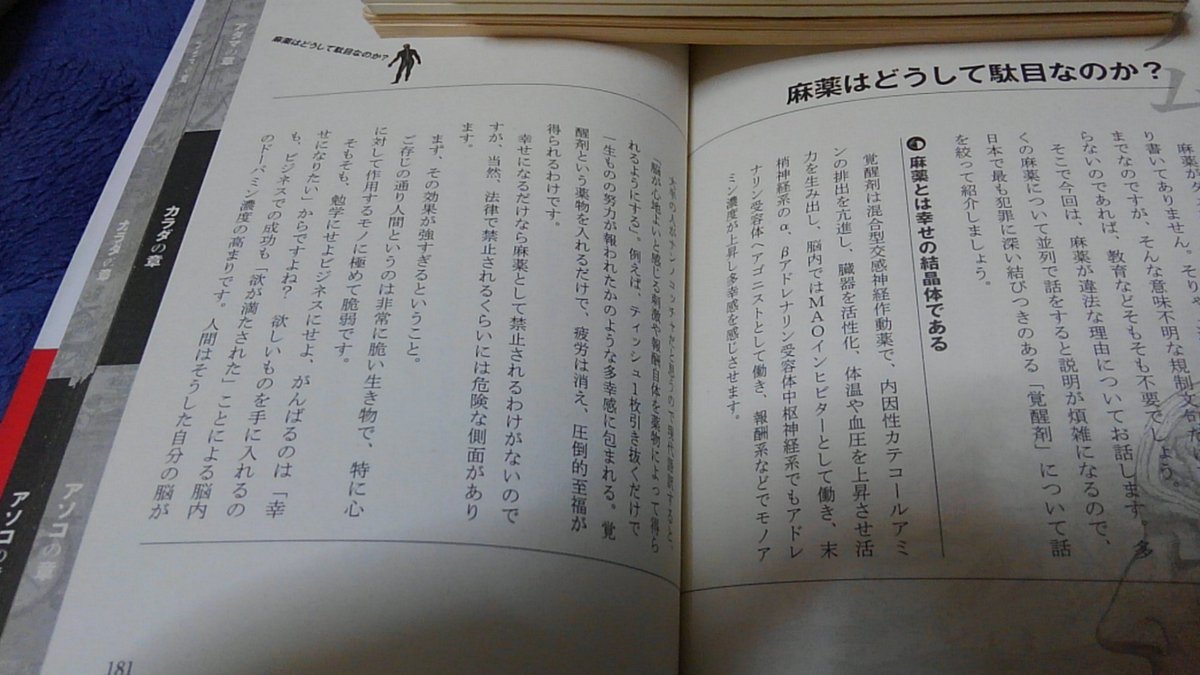 麻薬はどうして駄目なのか?
り書いてありません。
までなのですが、そんな意味不明な規制
らないのであれば、教育などそもそも不要でしょう。
そこで今回は、麻薬が違法な理由についてお話します。多
くの麻薬について並列で話をすると説明が煩雑になるので、
日本で最も犯罪に深い結びつきのある「覚醒剤」について話
を絞って紹介しましょう。
麻薬とは幸せの結晶体である
覚醒剤は混合型交感神経作動薬で、内因性カテコールアミ
ンの排出を亢進し、臓器を活性化、体温や血圧を上昇させ活
力を生み出し、脳内ではMAOインヒビターとして働き、末
梢神経系のα、βアドレナリン受容体中枢神経系でもアドレ
ナリン受容体へアゴニストとして働き、報酬系などでモノア
ミン濃度が上昇し多幸感を感じさせます。
麻薬はどうして駄目なのか?
「脳が心地よいと感じる刺激や報酬自体を薬物によって得ら
れるようにする」。例えば、ティッシュ1枚引き抜くだけで
一生ものの努力が報われたかのような多幸感に包まれる。覚
醒剤という薬物を入れるだけで、疲労は消え、圧倒的至福が
得られるわけです。
幸せになるだけなら麻薬として禁止されるわけがないので
すが、当然、法律で禁止されるくらいには危険な側面があり
ます。
まず、その効果が強すぎるということ。
ご存じの通り人間というのは非常に脆い生き物で、特に心
に対して作用するモノに極めて脆弱です。
そもそも、勉学にせよビジネスにせよ、がんばるのは「幸
せになりたい」からですよね? 欲しいものを手に入れるの
も、ビジネスでの成功も「欲が満たされた」ことによる脳内
のドーパミン濃度の高まりです。 人間はそうした自分の脳が
アタマの章
カラダの章
カラダの章
アソコの章
アソコの
181